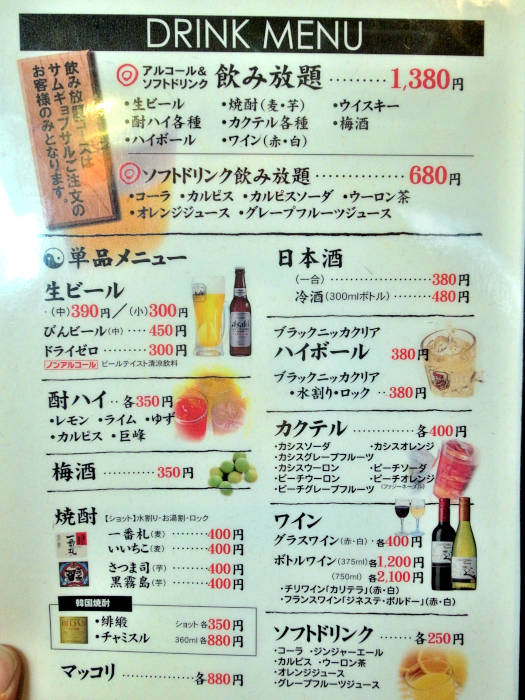 DRINK MENU
飲み放題コースは
サムギョプサルご注文の
お客様のみとなります。
アルコール&
ソフトドリンク 飲み放題 ········· 1,380円
・生ビール ・焼酎(麦・芋) ・ウイスキー
・酎ハイ各種 ・カクテル各種 ・梅酒
・ハイボール ・ワイン(赤・白)
ソフトドリンク飲み放題 ········· 680円
・コーラ ・カルピス ・カルピスソーダ ・ウーロン茶
・オレンジジュース ・グレープフルーツジュース
単品メニュー
生ビール
・(中)390円/(小)300円
びんビール(中)···· 450円
ドライゼロ ········ 300円
ノンアルコール ビールテイスト清涼飲料
Asahi
酎ハイ ·· 各350円
・レモン ・ライム ・ゆず
・カルピス ・巨峰
梅酒 ············ 350円
焼酎 【ショット】水割り・お湯割・ロック
一番札(麦) ······· 400円
いいちこ(麦) ····· 400円
さつま司(芋) ····· 400円
黒霧島(芋) ······· 400円
韓国焼酎
・緋緞 ショット 各350円
・チャミスル 360ml 各880円
マッコリ ········ 各880円
日本酒
(一合) ················ 380円
冷酒(300mlボトル) ······ 480円
ブラックニッカクリア
ハイボール 380円
ブラックニッカクリア
・水割り・ロック ·· 380円
カクテル ····· 各400円
・カシスソーダ ・カシスオレンジ
・カシスグレープフルーツ
・カシスウーロン ・ピーチソーダ
・ピーチウーロン ・ピーチオレンジ
・ピーチグレープフルーツ (ファジーネーブル)
ワイン
グラスワイン(赤・白)·· 各400円
ボトルワイン(375ml) 各1,200円
(750ml) 各2,100円
・チリワイン「カリテラ」(赤・白)
・フランスワイン「ジネステ・ボルドー」(赤・白)
ソフトドリンク ·· 各250円
・コーラ ・ジンジャーエール
・カルピス ・ウーロン茶
・オレンジジュース
・グレープフルーツジュース